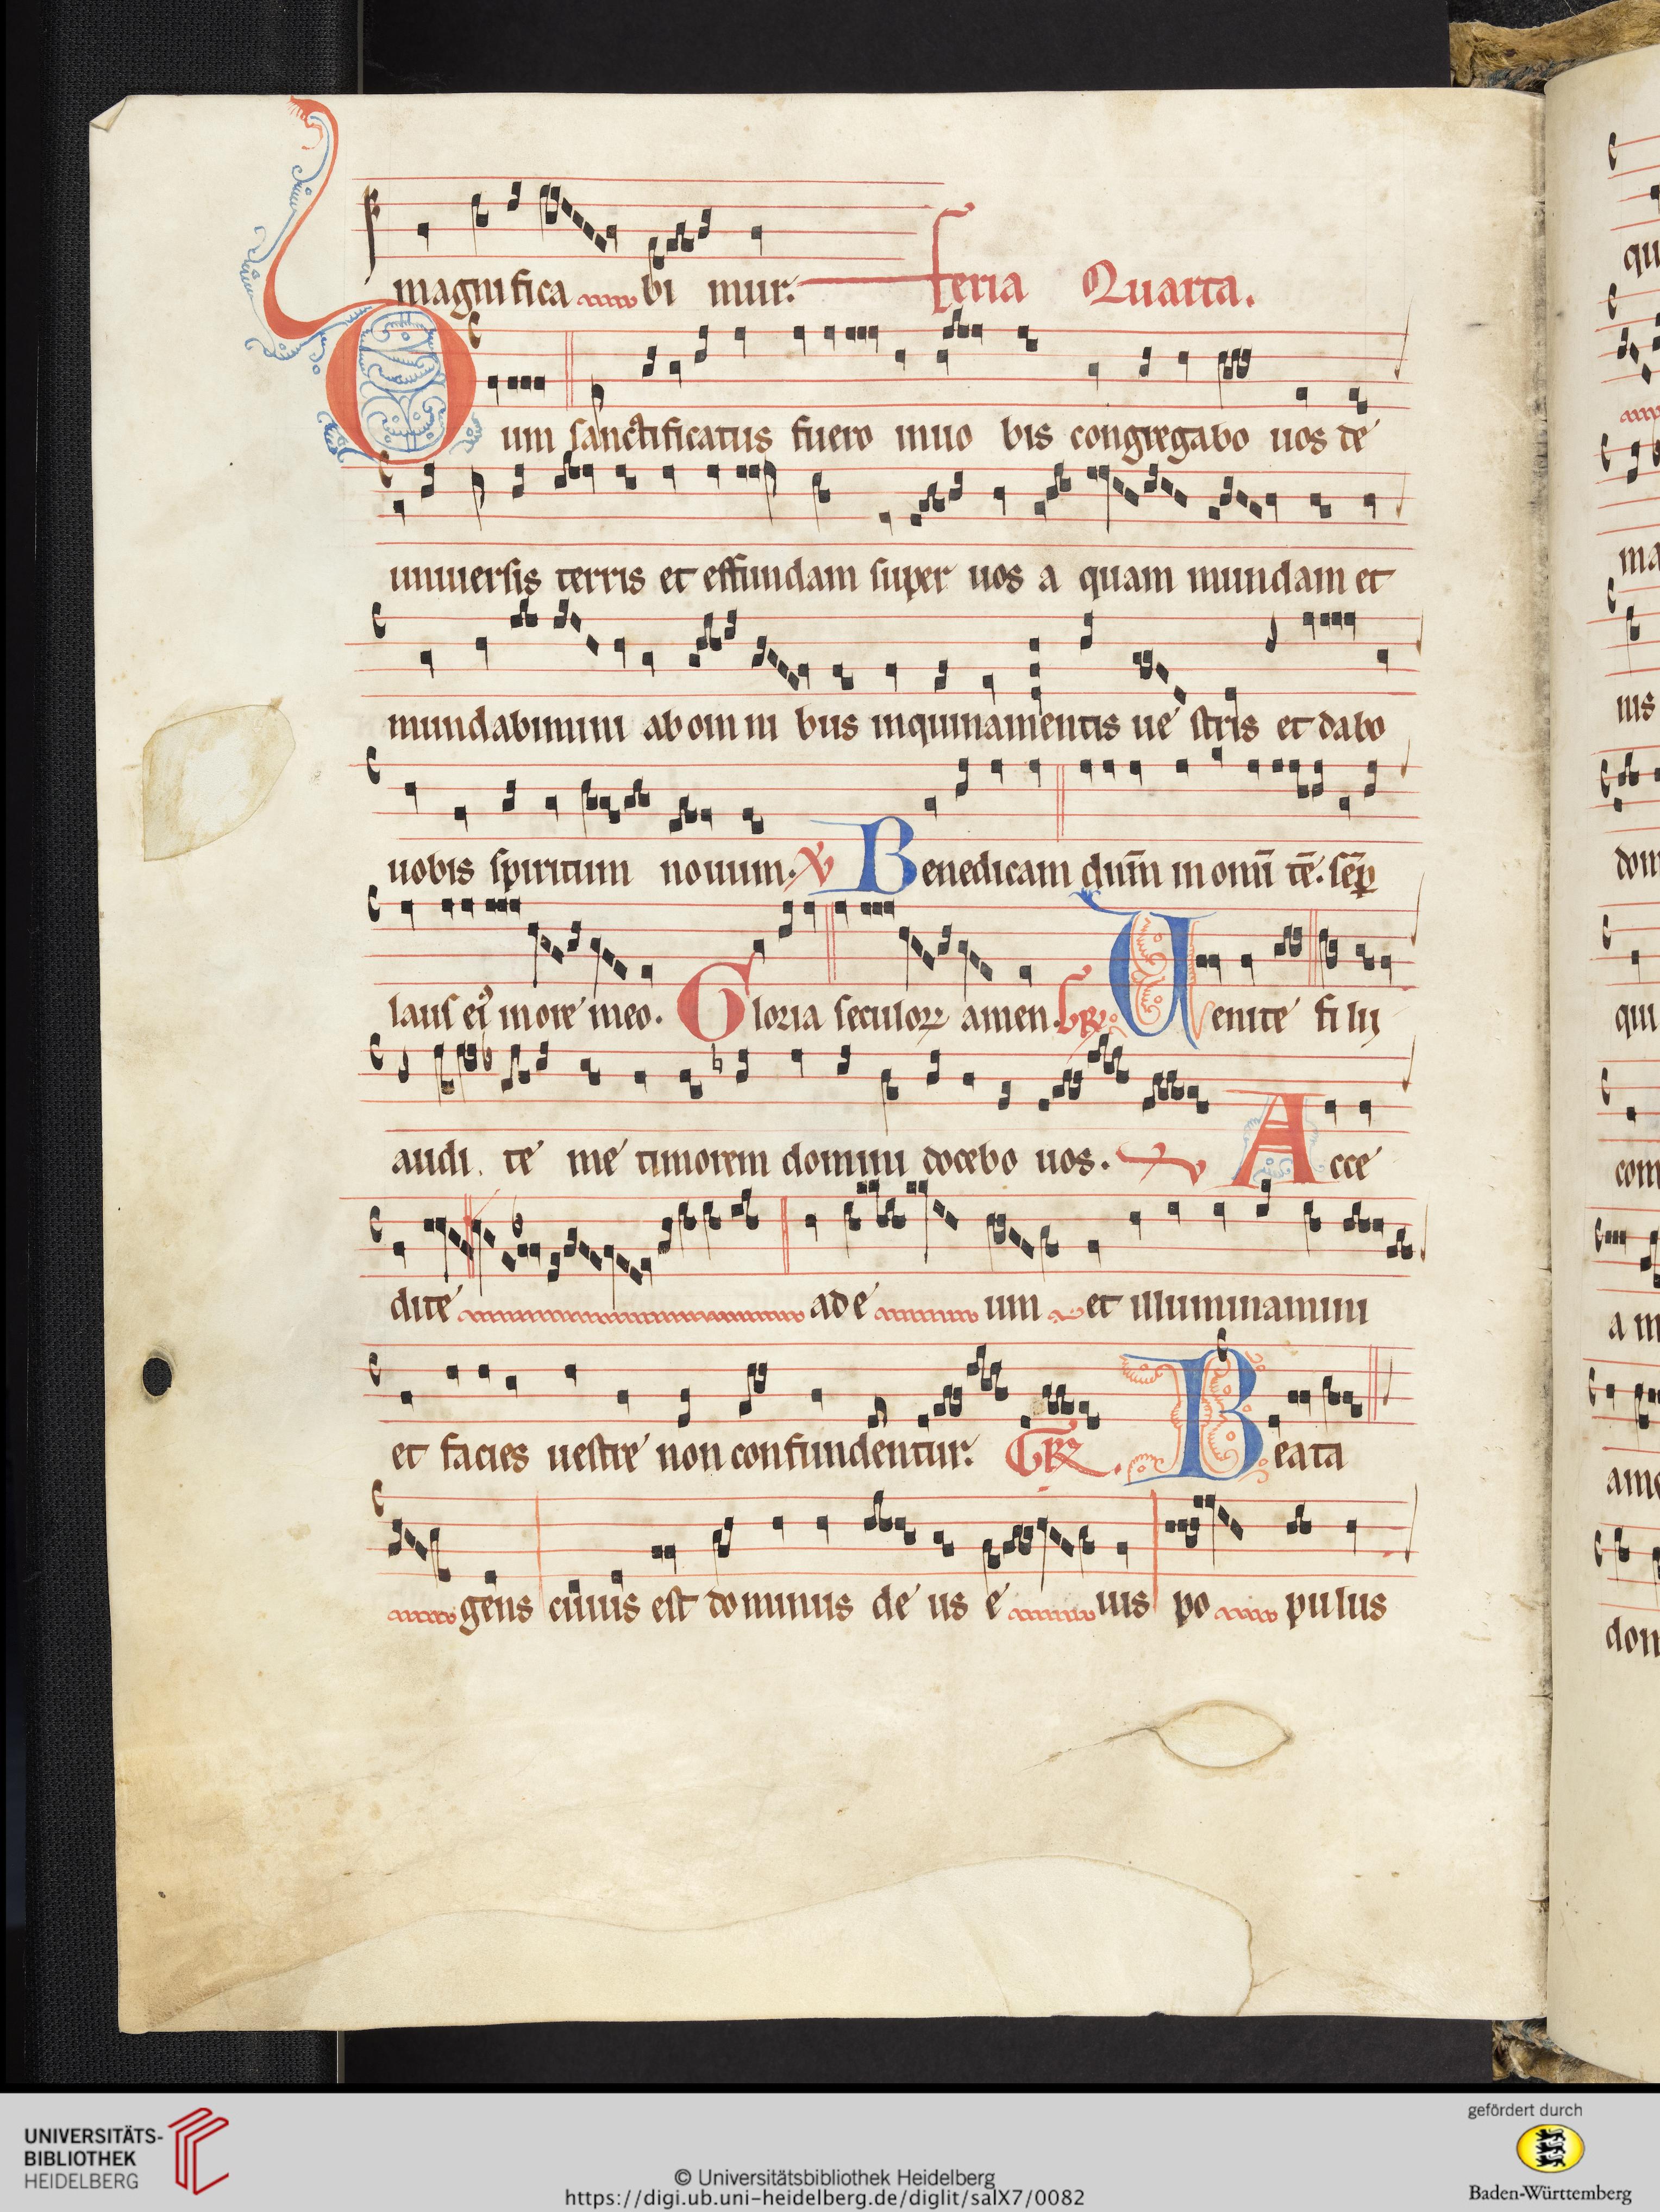 magnifica bi mur. feria Quarta.
Cum sanctificatus fuero inuo bis congregabo uos de
uniuersis terris et effundam super uos a quam mundam et
mundabimini ab omni bus inquinamentis ue stris et dabo
uobis spiritum nouum. V Benedicam dūm in omī tē. sēp
laus ei⁹ in ore meo. Gloria seculoꝝ amen. Gꝶ. Uenite filij
audi te me timorem domini docebo uos. V Acce
dite ad e um et illuminamini
et facies uestre non confundentur. Gꝶ. Beata
gens cuius est dominus de us e ius po pulus
qu
ma
ius
dom
qui
com
a m
ame
dom
UNIVERSITÄTS-
BIBLIOTHEK
HEIDELBERG
© Universitätsbibliothek Heidelberg
https://digi.ub.uni-heidelberg.de/diglit/salX7/0082
gefördert durch
Baden-Württemberg